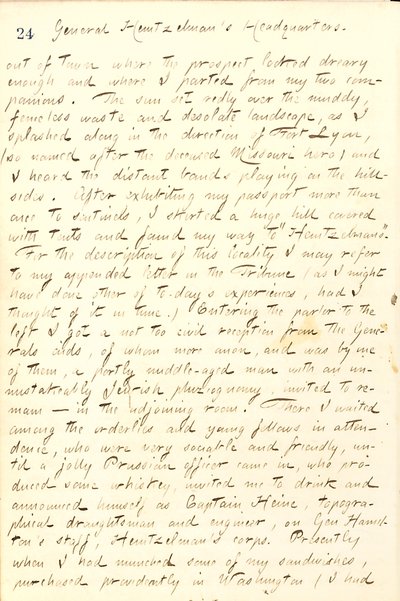 24 General Heintzelman's Headquarters.
out of town where the prospect looked dreary
enough and where I parted from my two com-
panions. The sun set redly over the muddy,
fenceless waste and desolate landscape, as I
splashed along in the direction of Fort Lyon,
(so named after the deceased Missouri hero) and
I heard the distant bands playing on the hill-
sides. After exhibiting my passport more than
once to sentinels, I skirted a huge hill covered
with tents and found my way to "Heintzelmans".
For the description of this locality I may refer
to my appended letter in the Tribune (as I might
have done other of to-day's experiences, had I
thought of it in time.) Entering the parlor to the
left I got a not too civil reception from the Gene-
rals aids, of whom more anon, and was by one
of them, a portly middle-aged man with an un-
mistakeably Jewish physiognomy, invited to re-
main — in the adjoining room. There I waited
among the orderlies and young fellows in atten-
dence, who were very sociable and friendly, un-
til a jolly Prussian officer came in, who pro-
duced some whiskey, invited me to drink and
announced himself as Captain Heine, topogra-
phical draughtsman and engineer, on Gen Hamil-
ton's staff, Heintzelman's corps. Presently
when I had munched some of my sandwishes,
purchased providently in Washington (I had